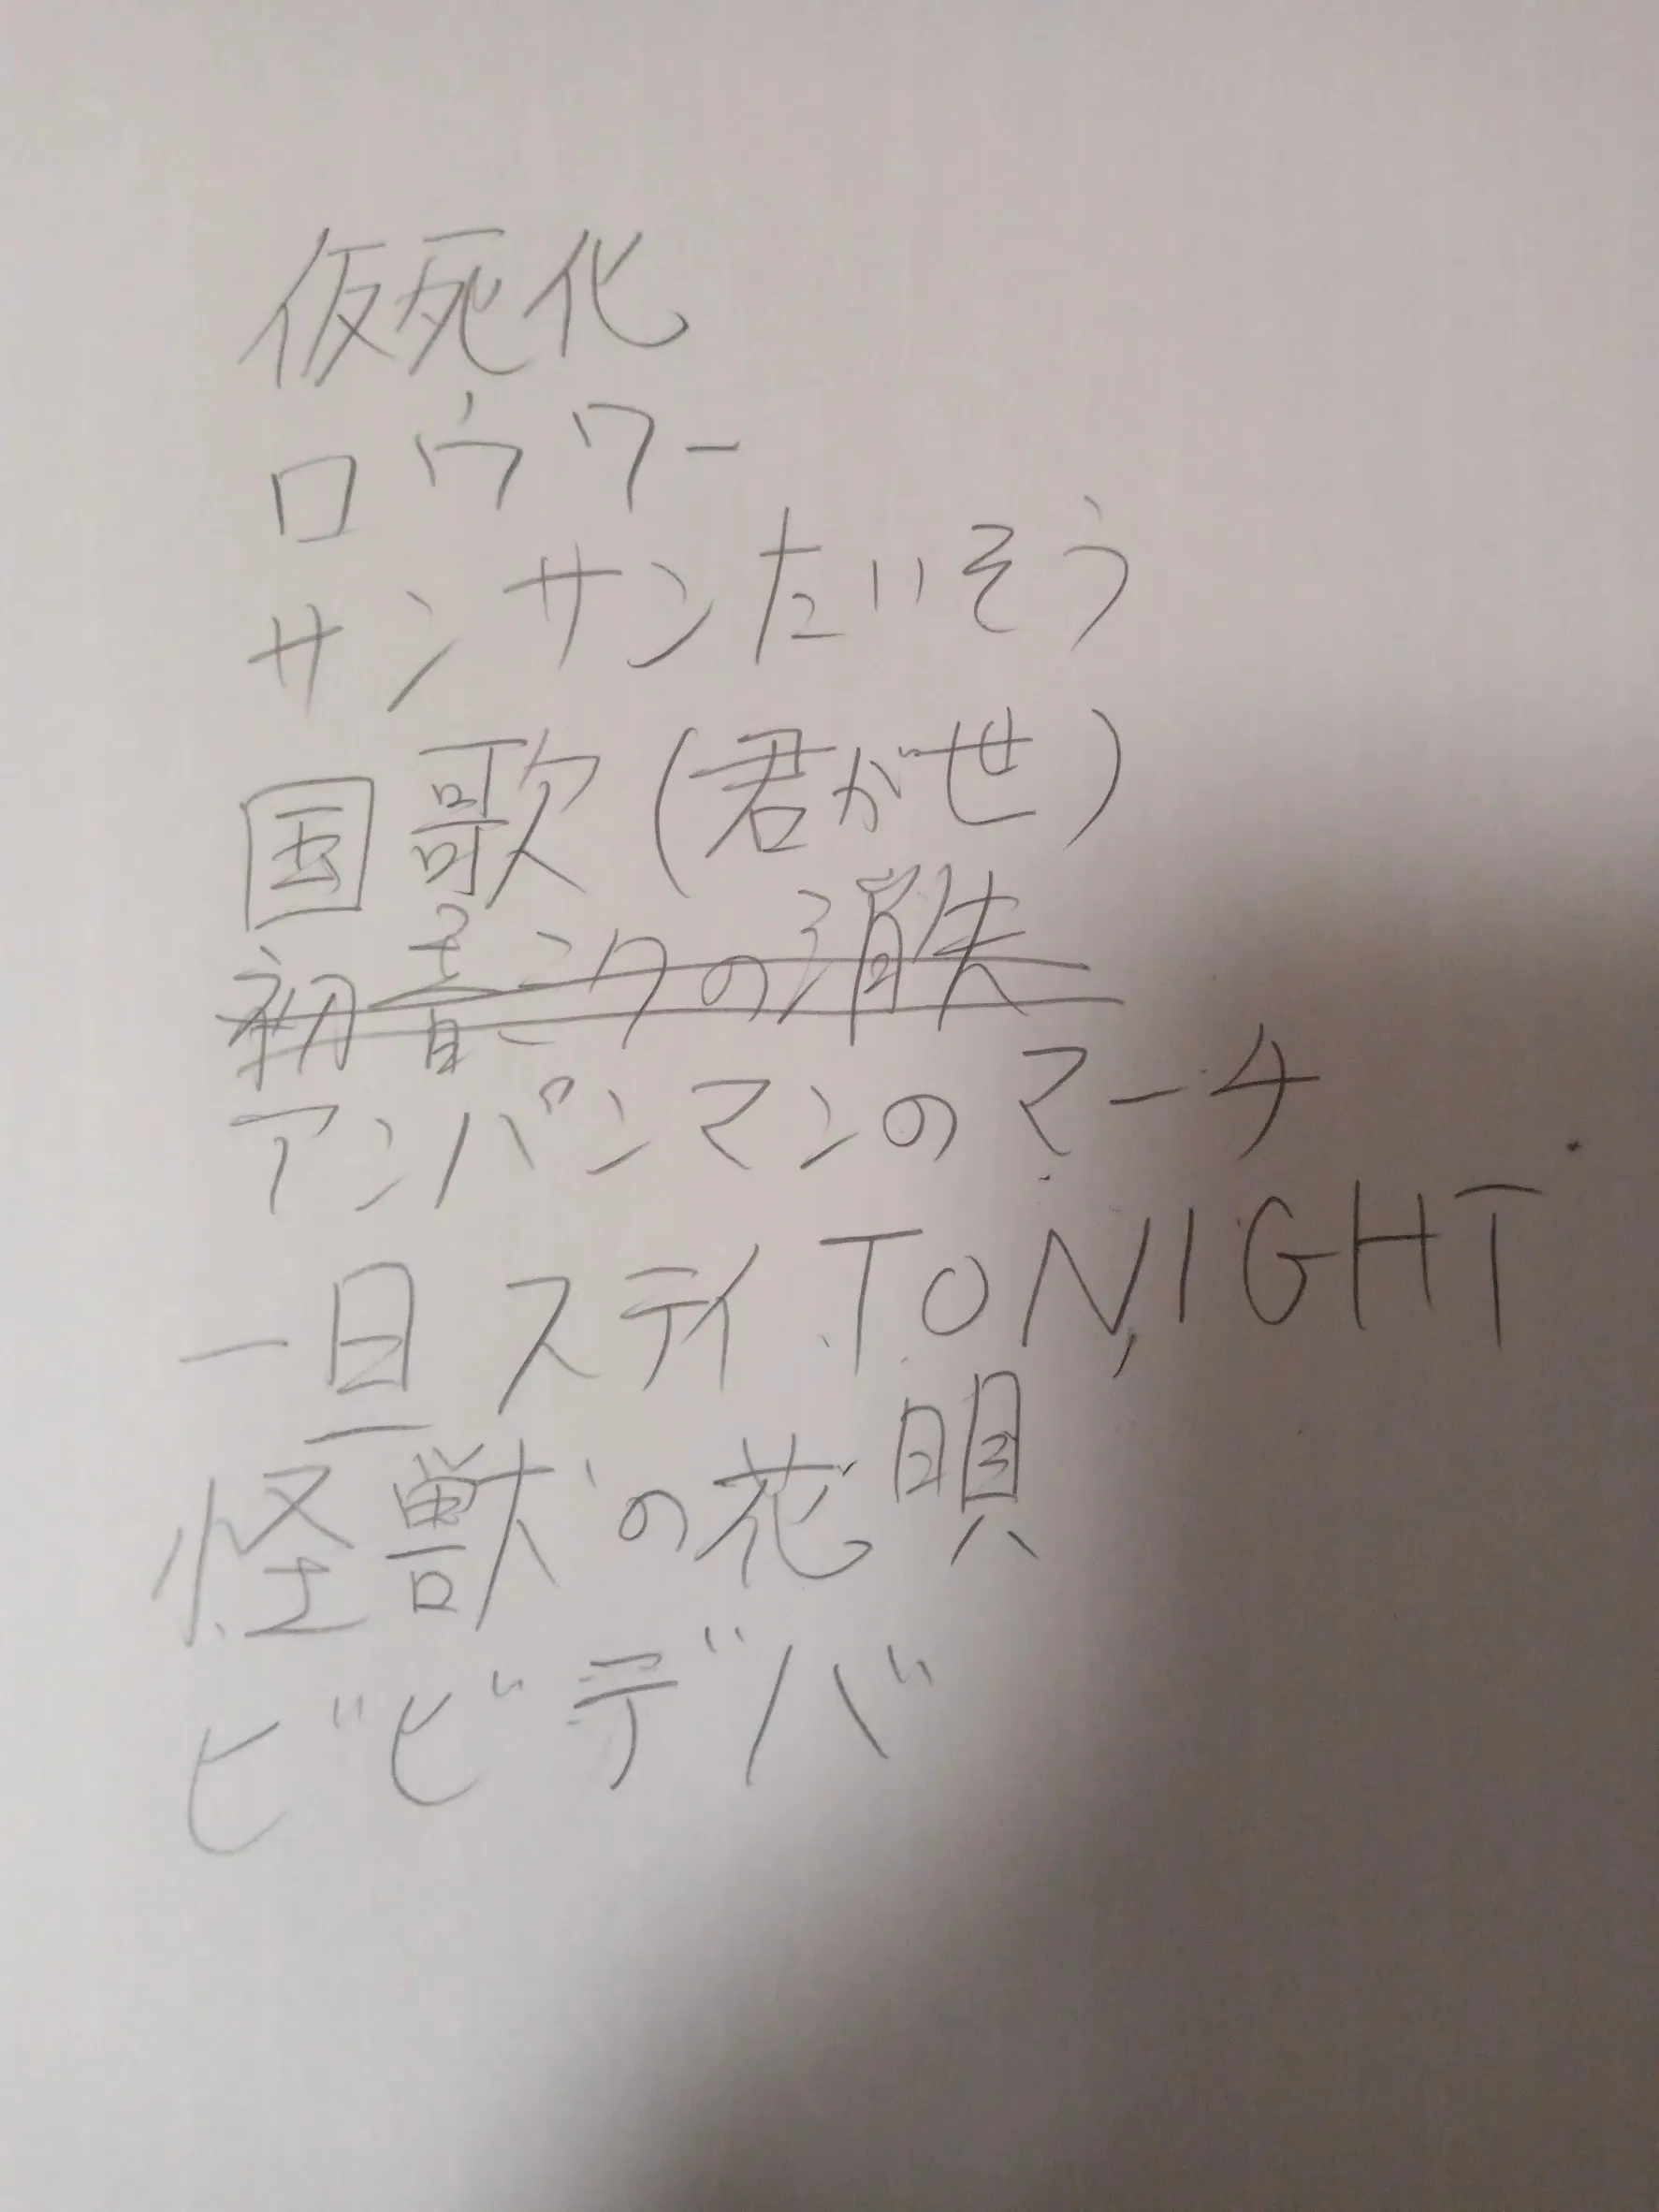 仮死化
ロウワー
サンサンたいそう
国歌(君が世)
初音ミクの消失
アンパンマンのマーチ
一旦ステイTONIGHT
怪獣の花唄
ビビデバ